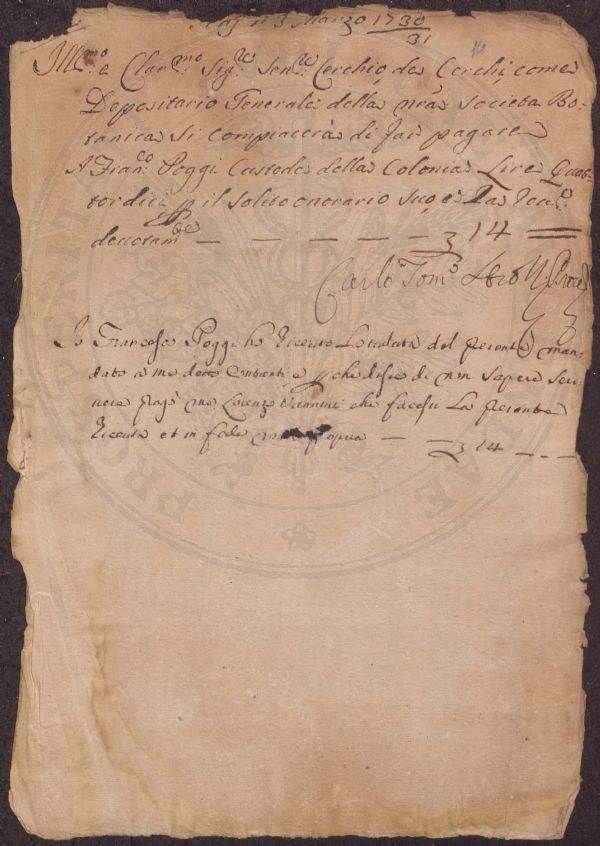 3 Marzo 1730/31
Ill.mo e Clar.mo Sig.re Sen.re Cerchio de Cerchi, come
Depositario Generale della nrã Societa Bo-
tanica si compiacerà di far pagare
A Fran.co Poggi Custode della Colonia Lire Quat-
tordici il solito onorario suo, e La
deuotam.te — — — — — 14
Carlo Tom.o
Io Francesco Poggi ho riceuto La ualuta del presente man-
dato a me detto contanti e che disse di non sapere scri-
uere pregò me Lorenzo Vannini che facessi La presente
riceuta et in fede mano propria — — 14 — — —
PRO